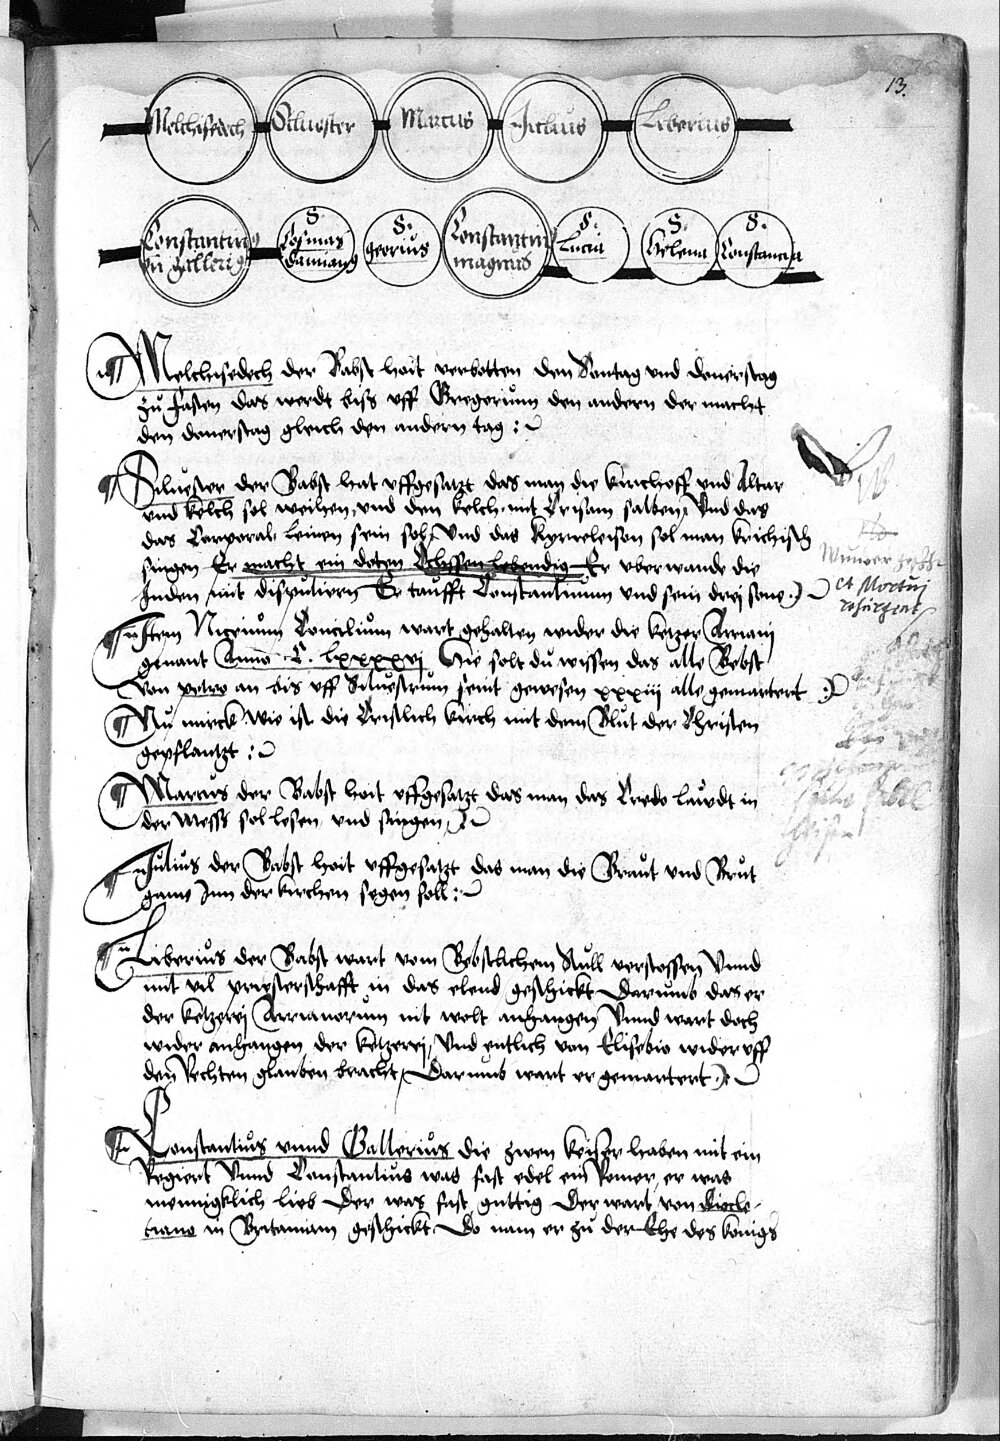 13.
Melchisedech Siluester Marcus Julius Liberius
Constantinus S. Cosmas S. georius Constantin S. Lucia S. Helena S. Constancia
vn gallerig damiang magnus
Melchisedech der Babst hait verbotten den Sontag vnd donerstag
zu fasten das werdt biss vff Gregorium den andern der macht
den donerstag gleich den andern tag
Siluester der Babst hat vffgesatzt das man die kirchoff vnd Altar
vnd kelch sol weihen, vnd den kelch mit Crisam salben, Vnd das
das Corporal leinen sein sol, Vnd das Kyrieleison sol man krichisch
singen Er macht ein doten Ochssen lebendig Er vberwande die
Juden mit disputiern Er taufft Constantinum vnd sein drej sone
Item Nicenum Concilium wart gehalten wider die ketzer Arrianj
genant Anno C. lxxxxvj Hie solt du wissen das alle Bebst
von petro an bis vff Siluestrum seint gewesen xxxiij alle gemartert
Nu mirck wie ist die Cristlich kirch mit dem Blut der Christen
gepflantzt
Marcus der Babst hait vffgesatzt das man das Credo laudt in
der Mess sol lesen vnd singen
Julius der Babst hait vffgesatzt das man die Braut vnd Brut
gams Inn der kirchen segen soll
Liberius der Babst wart vom Bebstlichem Stull verstossen Vnnd
mit vil priesterschafft in das elend geschickt Darumb das er
der ketzerej Arrianorum nit wolt anhangen Vnnd wart doch
wider anhangen der ketzerej, Vnd entlich von Elisebio wider vff
den Rechten glauben bracht, Darumb wart er gemartert
Constantius vnnd Gallerius die zwen keiser haben mit ein
Regiert Vnnd Constantius was fast edel ein Romer, er was
mennigklich lieb Der was fast guttig Der wart von diocle-
tiano in Britaniam geschickt Do nam er zu der Ehe des konigs
Wunder
et Mortuj
resurgent